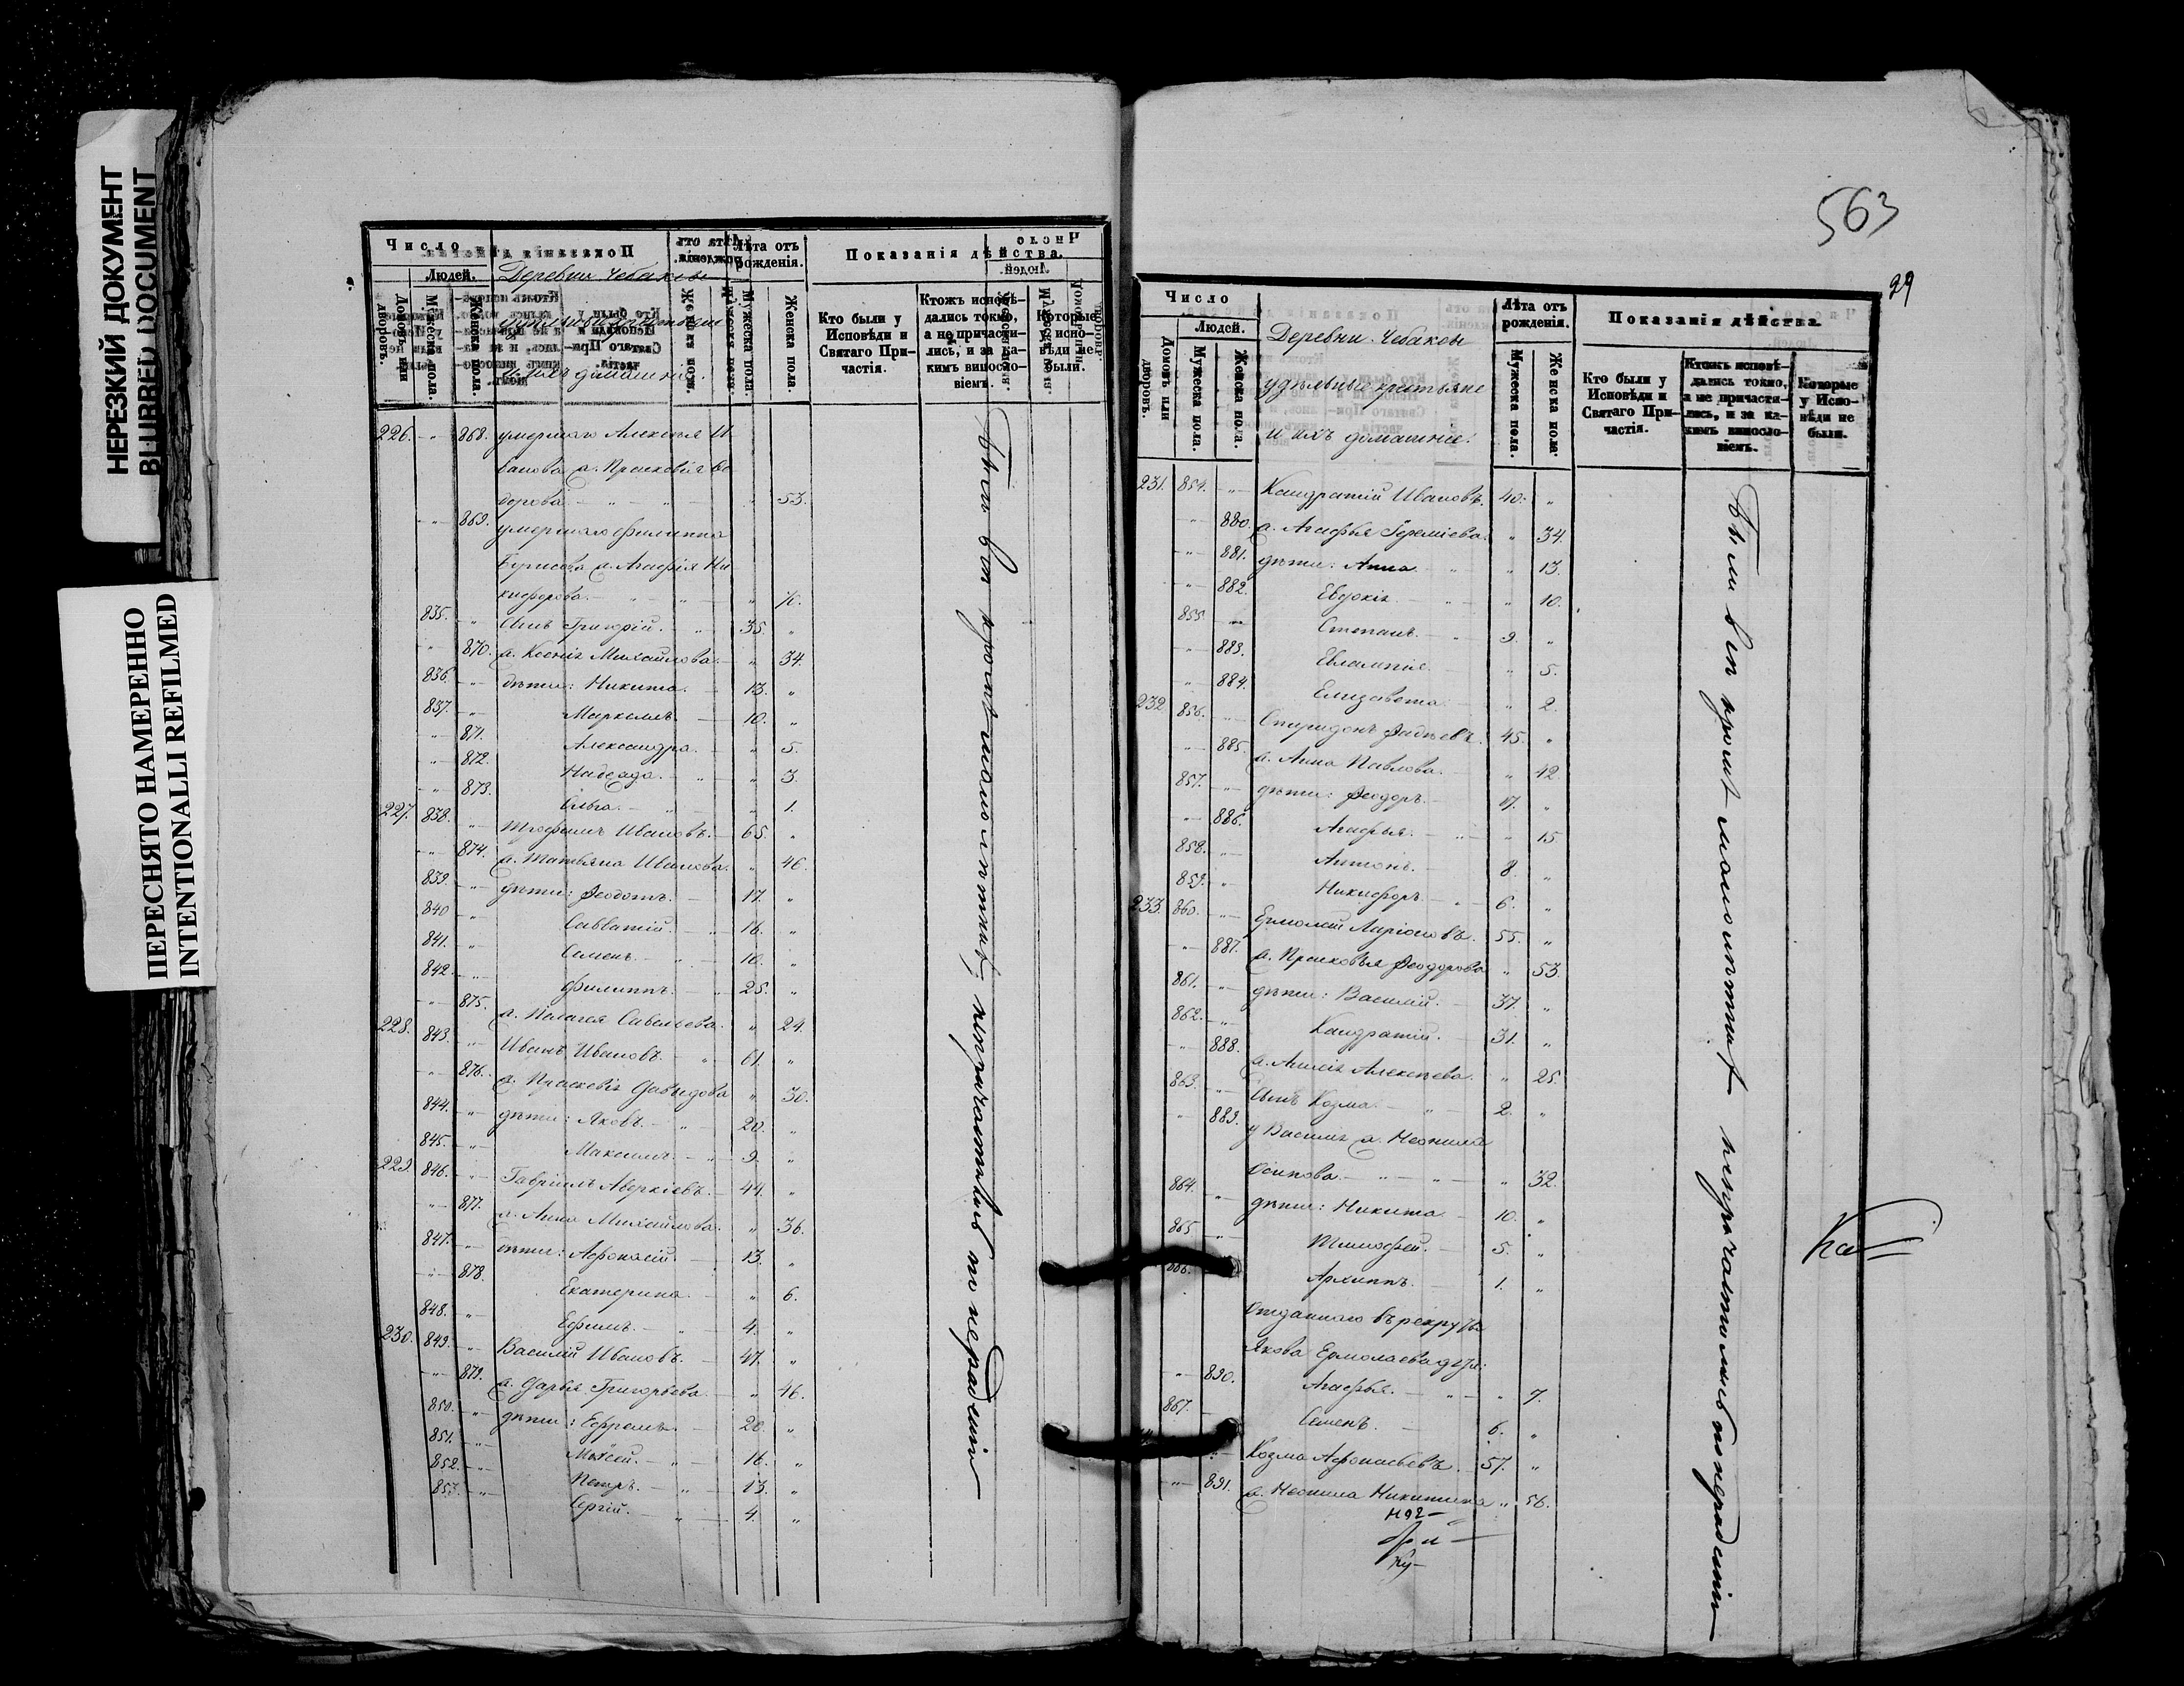 НЕРЕЗКИЙ ДОКУМЕНТ
BLURRED DOCUMENT
ПЕРЕСНЯТО НАМЕРЕННО
INTENTIONALLI REFILMED
Число
Людей.
Домовъ или дворовъ.
Мужеска пола.
Женска пола.
Деревни Чебаксы
и ихъ домашніе.
Лѣта отъ рожденія.
Мужеска пола.
Женска пола.
Показанія дѣйства.
Кто были у Исповѣди и Святаго Причастія.
Ктожъ исповѣдались токмо, а не причастились, и за какимъ винословіемъ.
Которые у исповѣди не были.
226. " 868. умершаго Алексѣя И
ванова ж. Прасковія Ѳе
дорова 53.
" 869. умершаго Филиппа
Борисова ж. Агафія Ни
кифорова "
835. " Сынъ Григорій. 35. "
" 870. ж. Ксенія Михайлова " 34.
836. " дѣти: Никита. 13. "
837. " Маркеллъ. 10. "
" 871. Александра. " 5.
" 872. Надежда. " 3.
" 873. Ольга. " 1.
227. 838. " Трофимъ Ивановъ. 65. "
" 874. ж. Татьяна Иванова. " 46.
839. " дѣти: Ѳеодотъ. 17. "
840 " Савватій. 16. "
841. " Семенъ. 10. "
842. " Филиппъ. 25. "
" 875. ж. Пелагея Савельева. " 24.
228. 843. " Иванъ Ивановъ. 61. "
" 876. ж. Прасковія Давыдова " 30.
844. " дѣти: Яковъ. 20. "
845. " Максимъ. 9. "
229. 846. " Гавріилъ Аверкіевъ. 44. "
" 877. ж. Анна Михайлова. " 36.
847. " дѣти: Афонасій. 13. "
" 878. Екатерина. " 6.
848. " Ефимъ. 4. "
230. 849. " Василій Ивановъ. 47. "
" 879. ж. Дарья Григорьева. " 46.
850. " дѣти: Ефремъ. 20. "
851. " Моѵсей. 16. "
852. " Петръ. 13. "
853. " Сергій. 4. "
Были вси кромѣ малолѣтнихъ, непричастились по нерадѣнію
563
29
Число
Людей.
Домовъ или дворовъ.
Мужеска пола.
Женска пола.
Деревни Чебаксы
удѣльные крестьяне
и ихъ домашніе.
Лѣта отъ рожденія.
Мужеска пола.
Женска пола.
Показанія дѣйства.
Кто были у Исповѣди и Святаго Причастія.
Ктожъ исповѣдались токмо, а не причастились, и за какимъ винословіемъ.
Которые у Исповѣди не были.
231. 854. " Кондратій Ивановъ. 40. "
" 880. ж. Агафья Іереміева. " 34.
" 881. дѣти: Анна. " 13.
" 882. Евдокія. " 10.
855. " Степанъ. 9. "
" 883. Евлампія. " 5.
" 884. Елизавета. " 2.
232 856. " Спиридонъ Фадѣевъ. 45. "
" 885. ж. Анна Павлова. " 42.
857. " дѣти: Ѳеодоръ. 17. "
" 886. Агафья. " 15
858. " Антонъ. 8. "
859. " Никифоръ. 6. "
233. 860. " Ермолай Ларіоновъ. 55. "
" 887. ж. Прасковья Ѳеодорова " 53.
861. " дѣти: Василій. 37. "
862. " Кондратій. 31. "
" 888. ж. Анисія Алексѣева. " 25.
863. " Сынъ Козма. 2. "
" 889. у Василія ж. Неонила
Осипова. " 32.
864. " дѣти: Никита 10. "
865 " Тимофей. 5. "
866. Архиппъ. 1. "
Отданнаго въ рекруты
Якова Ермолаева дѣти:
" 890. Агафья. " 7.
867. Семенъ. 6. "
" Козма Афонасьевъ. 57. "
" 891. ж. Неонила Никитина " 56.
Были вси кромѣ малолѣтнихъ непричастились по нерадѣнію